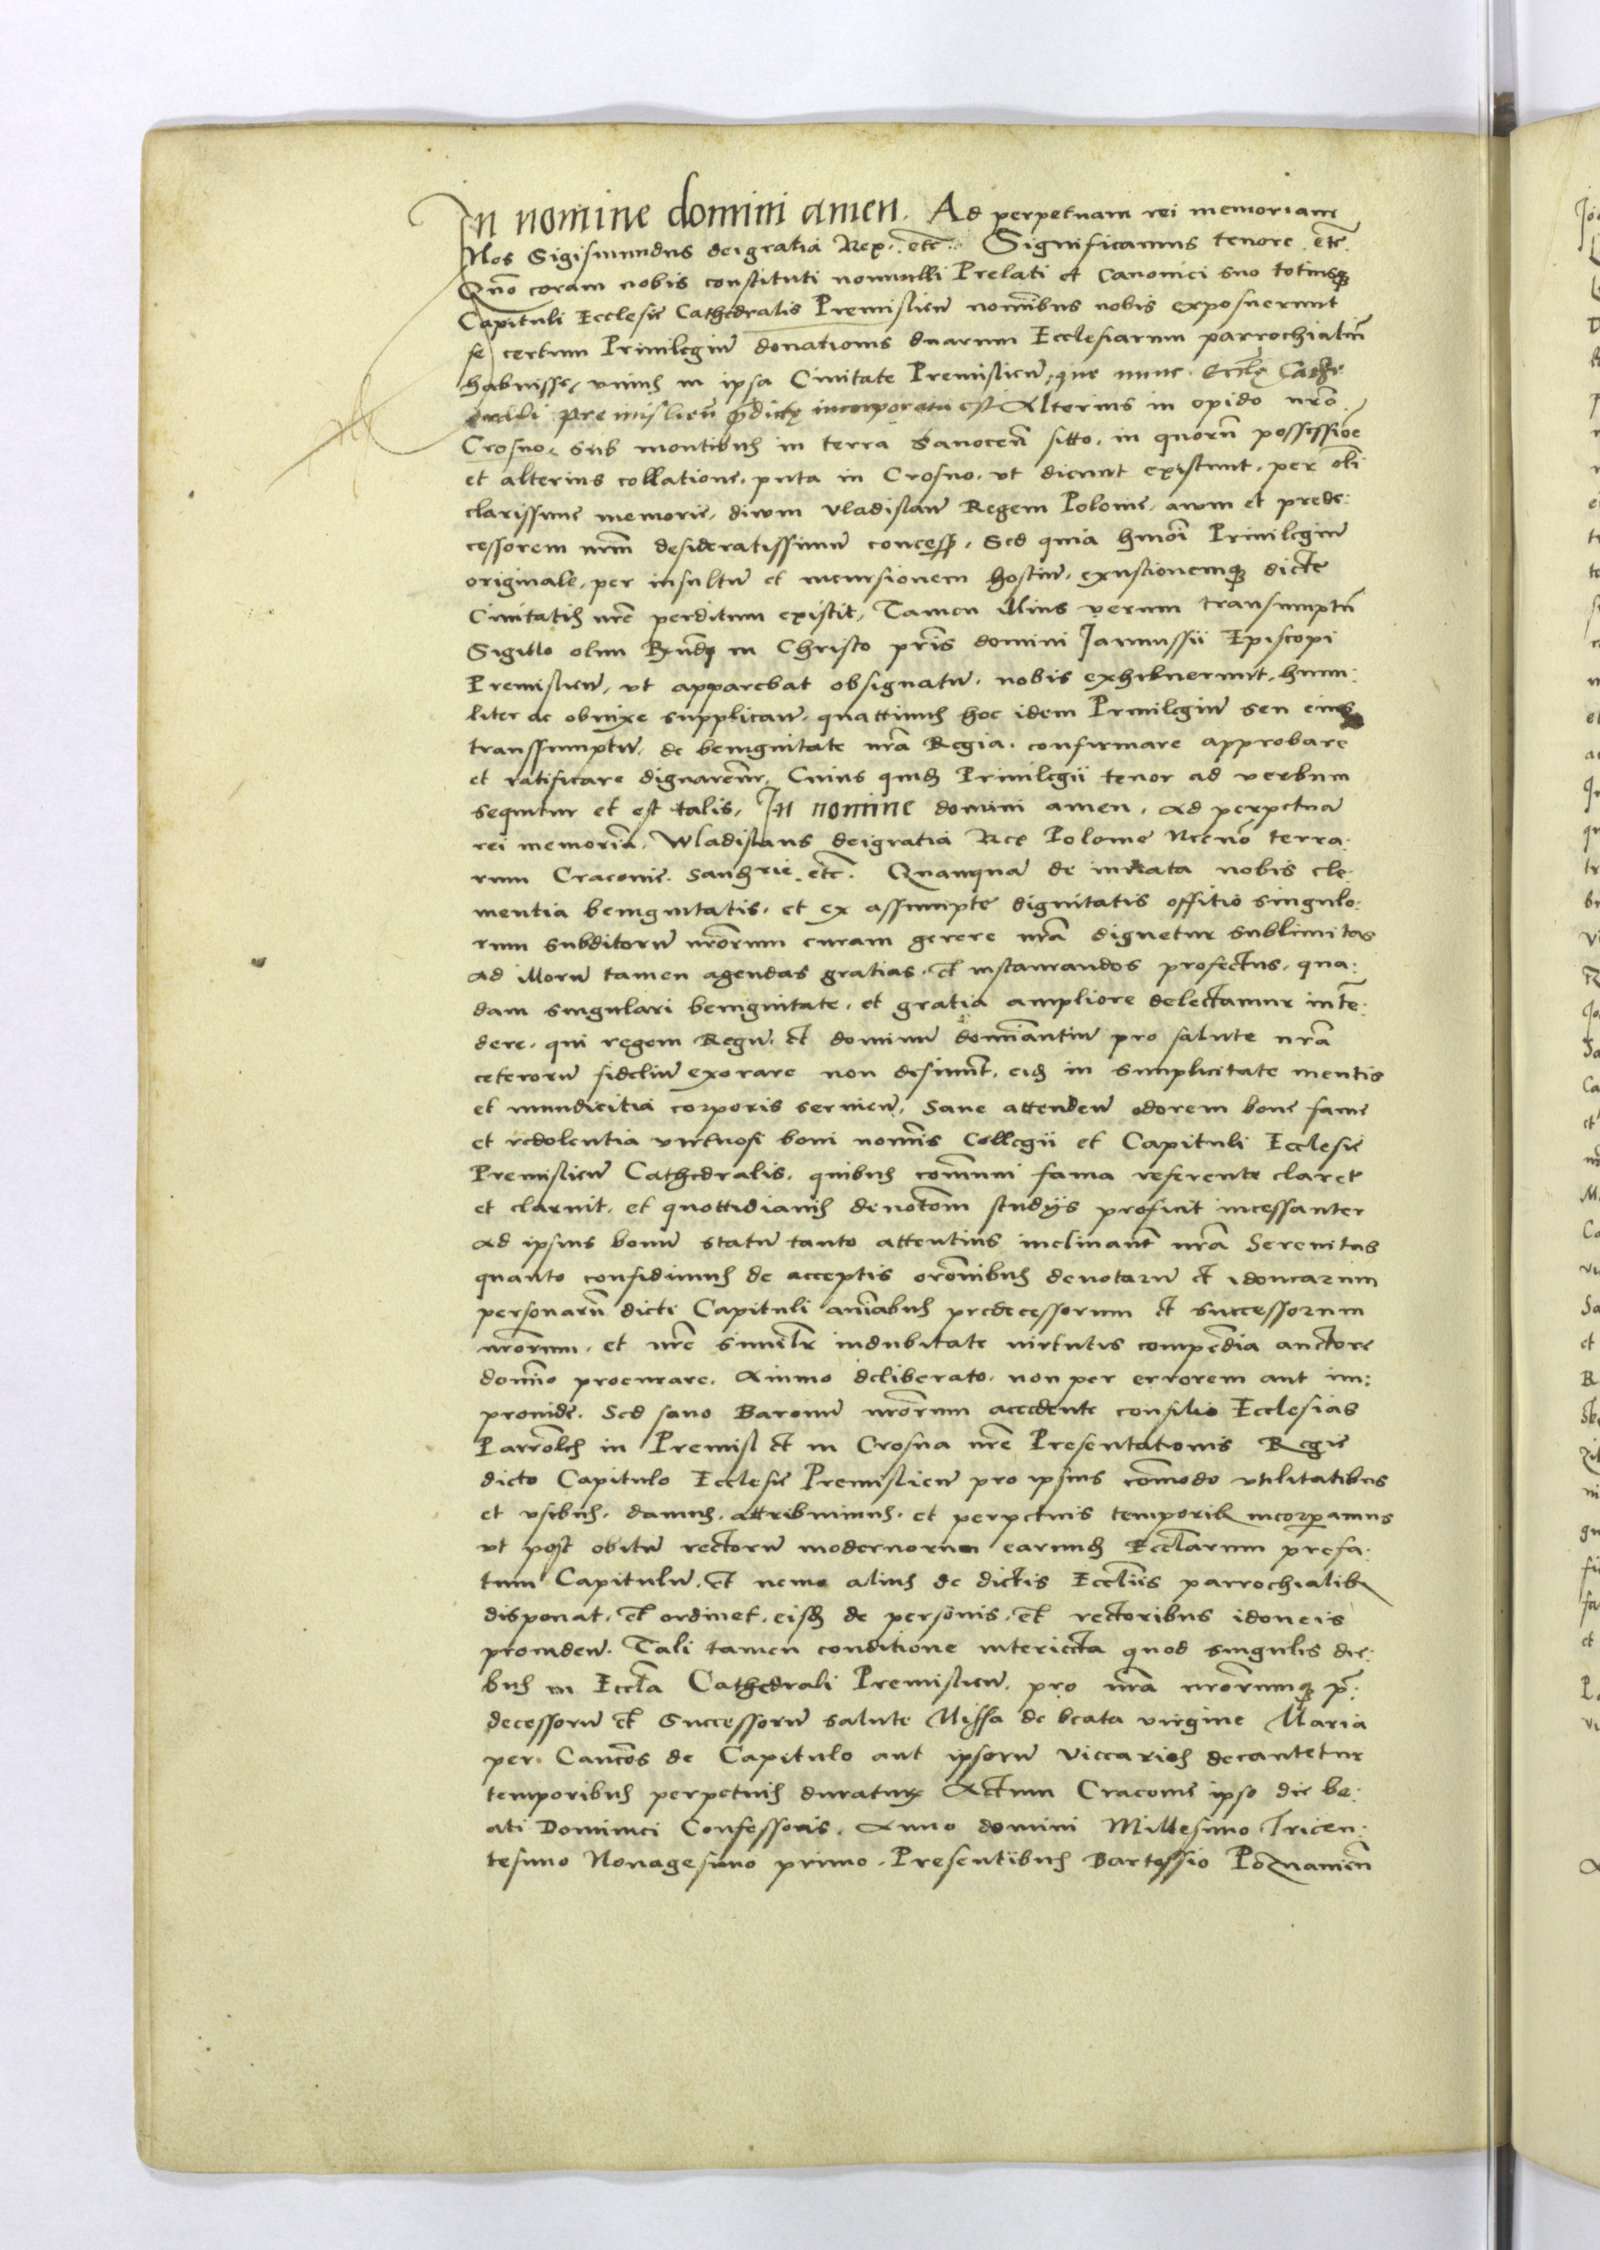 In nomine domini amen. Ad perpetuam rei memoriam
Nos Sigismundus deigratia Rex. etc. Significamus tenore etc.
Quo coram nobis constituti nonnulli Prelati et Canonici suo totiusq
Capituli Ecclesie Cathedralis Premislien nominibus nobis exposuerunt
se certum Privilegiū donationis duarum Ecclesiarum parrochialiū
habuisse, unius in ipsa Civitate Premislien, que nunc Ecclę Cathe
drali Premislien pdictę incorporata est Alterius in opido nrō
Crosno, sub montibus in terra Sanocen sitto, in quorū possessiōe
et alterius collatione, puta in Crosno, ut dicunt existunt, per oli
clarissime memorie, divum Vladislaū Regem Polonie, avum et prede:
cessorem nrm desideratissimū concess. Sed quia hmōi Privilegiū
originale, per insultū et incursionem hostiū, exustionemq dicte
Civitatis nre perditum existit, Tamen illius verum transumptū
Sigillo olim Rndi in Christo pris domini Janussii Episcopi
Premislien, ut apparebat obsignatū, nobis exhibuerunt, humi:
liter ac obnixe supplicaū, quattinus hoc idem Privilegiū seu eius
transsumptū, de benignitate nra Regia, confirmare approbare
et ratificare dignaremur, Cuius quid Privilegii tenor ad verbum
sequitur et est talis, In nomine domini amen, Ad perpetuā
rei memoriā, Wladislaus deigratia Rex Polonie Necnō terra:
rum Cracovie, Sandrie etc. Quanquā de innata nobis cle:
mentia benignitatis, et ex assumpte dignitatis offitio singulo:
rum subditorū nrorum curam gerere nra dignetur sublimitas
ad illorū tamen agendas gratias, et instaurandos profectus, qua:
dam singulari benignitate, et gratia ampliore delectamur intē:
dere, qui regem Regū, et dominū dominantiū pro salute nra
ceterorū fideliū exorare non desinunt, eid in simplicitate mentis
et mundicitia corporis servien, Sane attenden odorem bone fame
et redolentia virtuosi boni nomis Collegii et Capituli Ecclesie
Premislien Cathedralis, quibus communi fama referente claret
et claruit, et quottidianis devotom studiis proficit incessanter
Ad ipsius bonū statū tanto attentius inclinant nra Serenitas
quanto confidimus de acceptis oronibus devotarū et idonearum
personarū dicti Capituli animabus predecessorum et successorum
nrorum, et nre similiter indubitate virtutis compēdia auctore
domino procurare, Animo deliberato, non per errorem aut im:
provide, Sed sano Baronū nrorum accedente consilio Ecclesias
Parrolēs in Premisl et in Crosna nre Presentationis Regie
dicto Capitulo Ecclesie Premislien pro ipsius cōmodo utilitatibus
et usibus, damus, attribuimus, et perpetuis temporib incorporamus
ut post obitū rectorū modernorum earund Ecclarum prefa:
tum Capitulū, et nemo alius de dictis Eccliis parrochialib
disponat, et ordinet, eisd de personis, et rectoribus idoneis
providen, Tali tamen conditione interiecta quod singulis die:
bus in Eccla Cathedrali Premislien, pro nra nrorumq p:
decessorū et Successorū salute Missa de beata virgine Maria
per Cancos de Capitulo aut ipsorū Viccarios decantetur
temporibus perpetuis duratur Actum Cracovie ipso die be:
ati Dominici Confessoris, Anno domini Millesimo Tricen:
tesimo Nonagesimo primo, Presentibus Bartossio Poznanien